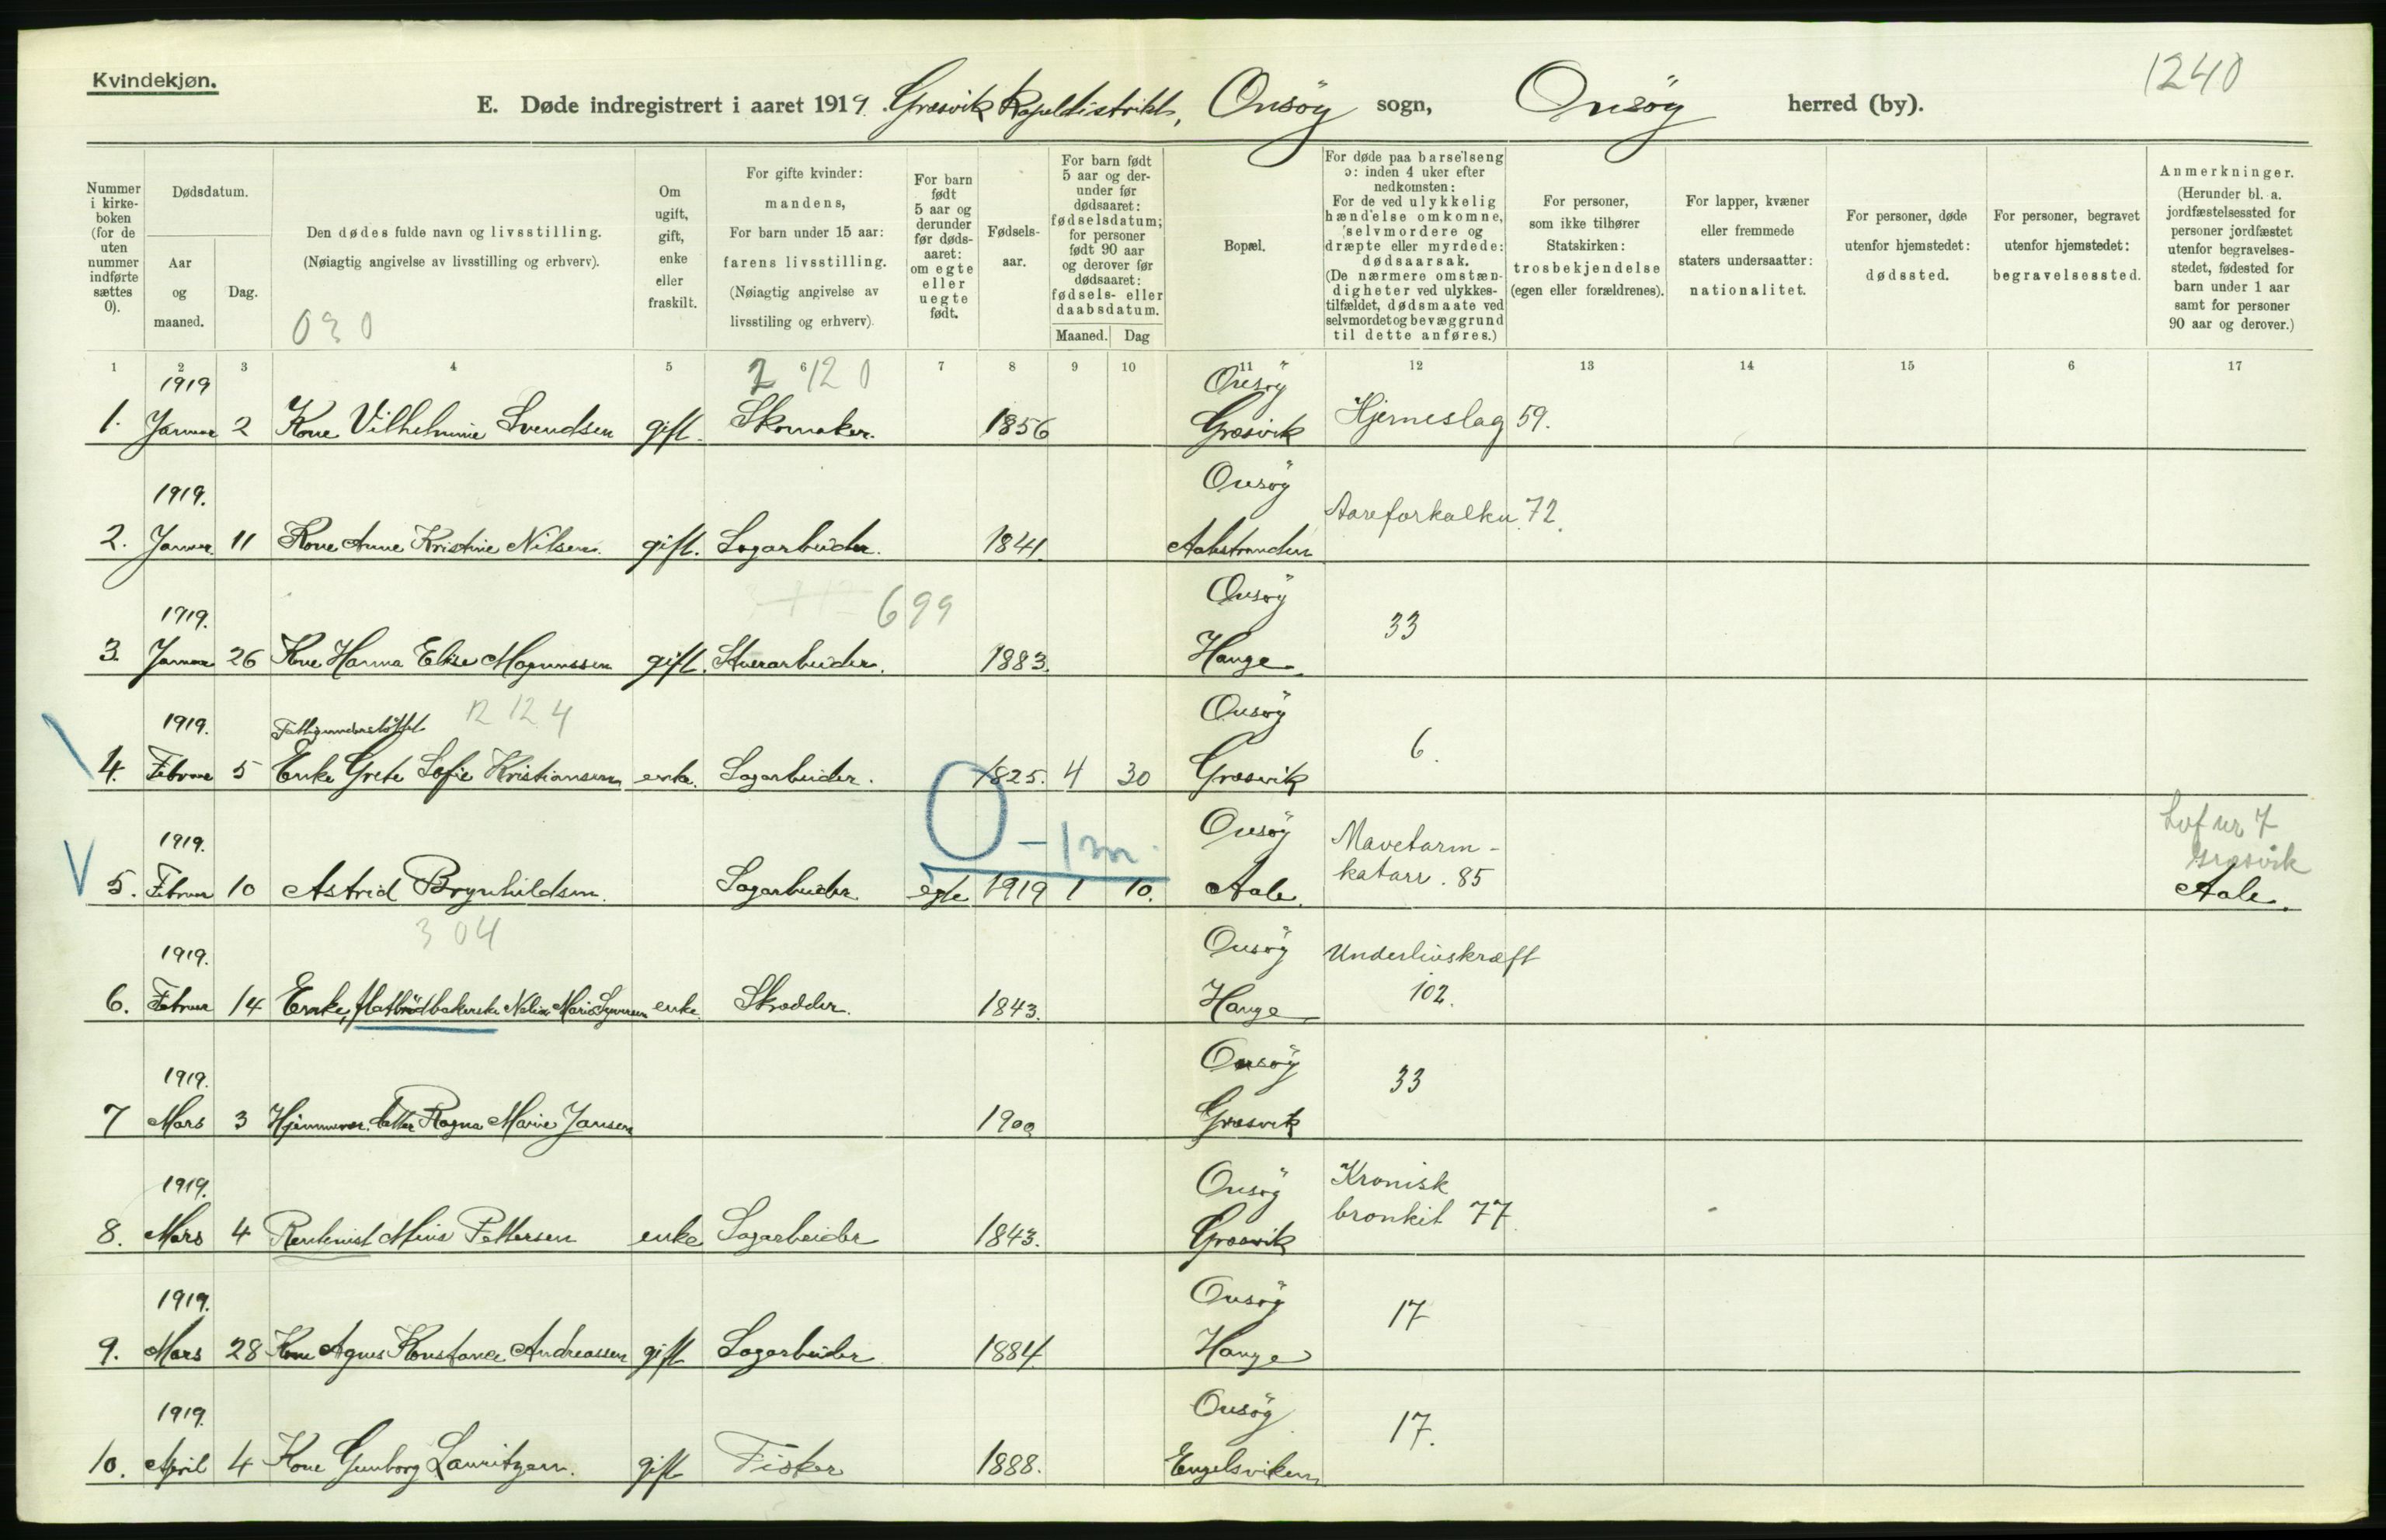 Kvindekjøn.
1240
E. Døde indregistrert i aaret 1919. Græsvik Kapeldistrikt, Onsöy sogn, Onsöy herred (by).
Nummer i kirke-boken (for de uten nummer indførte sættes 0).
Dødsdatum.
Aar og maaned.
Dag.
Den dødes fulde navn og livsstilling.
(Nøiagtig angivelse av livsstilling og erhverv).
030
Om ugift, gift, enke eller fraskilt.
For gifte kvinder: mandens,
For barn under 15 aar: farens livsstilling.
(Nøiagtig angivelse av livsstiling og erhverv).
For barn født 5 aar og derunder før døds-aaret: om egte eller uegte født.
Fødsels-aar.
For barn født 5 aar og der-under før dødsaaret: fødselsdatum; for personer født 90 aar og derover før dødsaaret: fødsels- eller daabsdatum.
Maaned. Dag
Bopæl.
For døde paa barselseng ɔ: inden 4 uker efter nedkomsten: For de ved ulykkelig hændelse omkomne, selvmordere og dræpte eller myrdede: dødsaarsak. (De nærmere omstæn-digheter ved ulykkes-tilfældet, dødsmaate ved selvmordet og bevæggrund til dette anføres.)
For personer, som ikke tilhører Statskirken: trosbekjendelse (egen eller forældrenes).
For lapper, kvæner eller fremmede staters undersaatter: nationalitet.
For personer, døde utenfor hjemstedet: dødssted.
For personer, begravet utenfor hjemstedet: begravelsessted.
Anmerkninger. (Herunder bl. a. jordfæstelsessted for personer jordfæstet utenfor begravelses-stedet, fødested for barn under 1 aar samt for personer 90 aar og derover.)
1 2 3 4 5 6 7 8 9 10 11 12 13 14 15 6 17
2 120
1919 Onsöy
1. Januar 2 Kone Vilhelmine Svendsen gift. Skomaker. 1856 Græsvik Hjerneslag 59.
1919. Onsöy
2. Januar 11 Kone Anne Kristine Nilsen. gift. Sagarbeider. 1841. Aalestranden Aareforkalkn. 72.
699
1919. Onsöy
3. Januar 26 Kone Hanna Elise Magnussen gift. Stuerarbeider. 1883. Hauge 33
1919. Fattigunderstöttet 12 124 Onsöy
4. Februar 5 Enke Grete Sofie Kristiansen enke. Sagarbeider. 1825. 4 30 Græsvik 6.
0 - 1 m.
1919. Onsöy Mavetarm-
Lvf nr 7 Græsvik
5. Februar 10 Astrid Brynhildsen. Sagarbeider egte 1919 1 10. Aale. katarr. 85 Aale.
304
1919. Onsöy Underlivskræft
6. Februar 14 Enke, flatbrödbakerske Marie enke. Skrædder. 1843. Hauge 102.
1919. Onsöy
7 Mars 3 Hjemmevær. datter Ragna Marie Jansen 1900 Græsvik 33
1919. Onsöy Kronisk
8. Mars 4 Rentenist Mina Pettersen enke Sagarbeider 1843. Græsvik bronkit 77.
1919. Onsöy
9. Mars 28 Kone Agnes Konstance Andreassen gift Sagarbeider 1884 Hauge 17
1919. Onsöy
10. April 4 Kone Gunborg Lauritzen. gift Fisker 1888. Engelsviken 17.